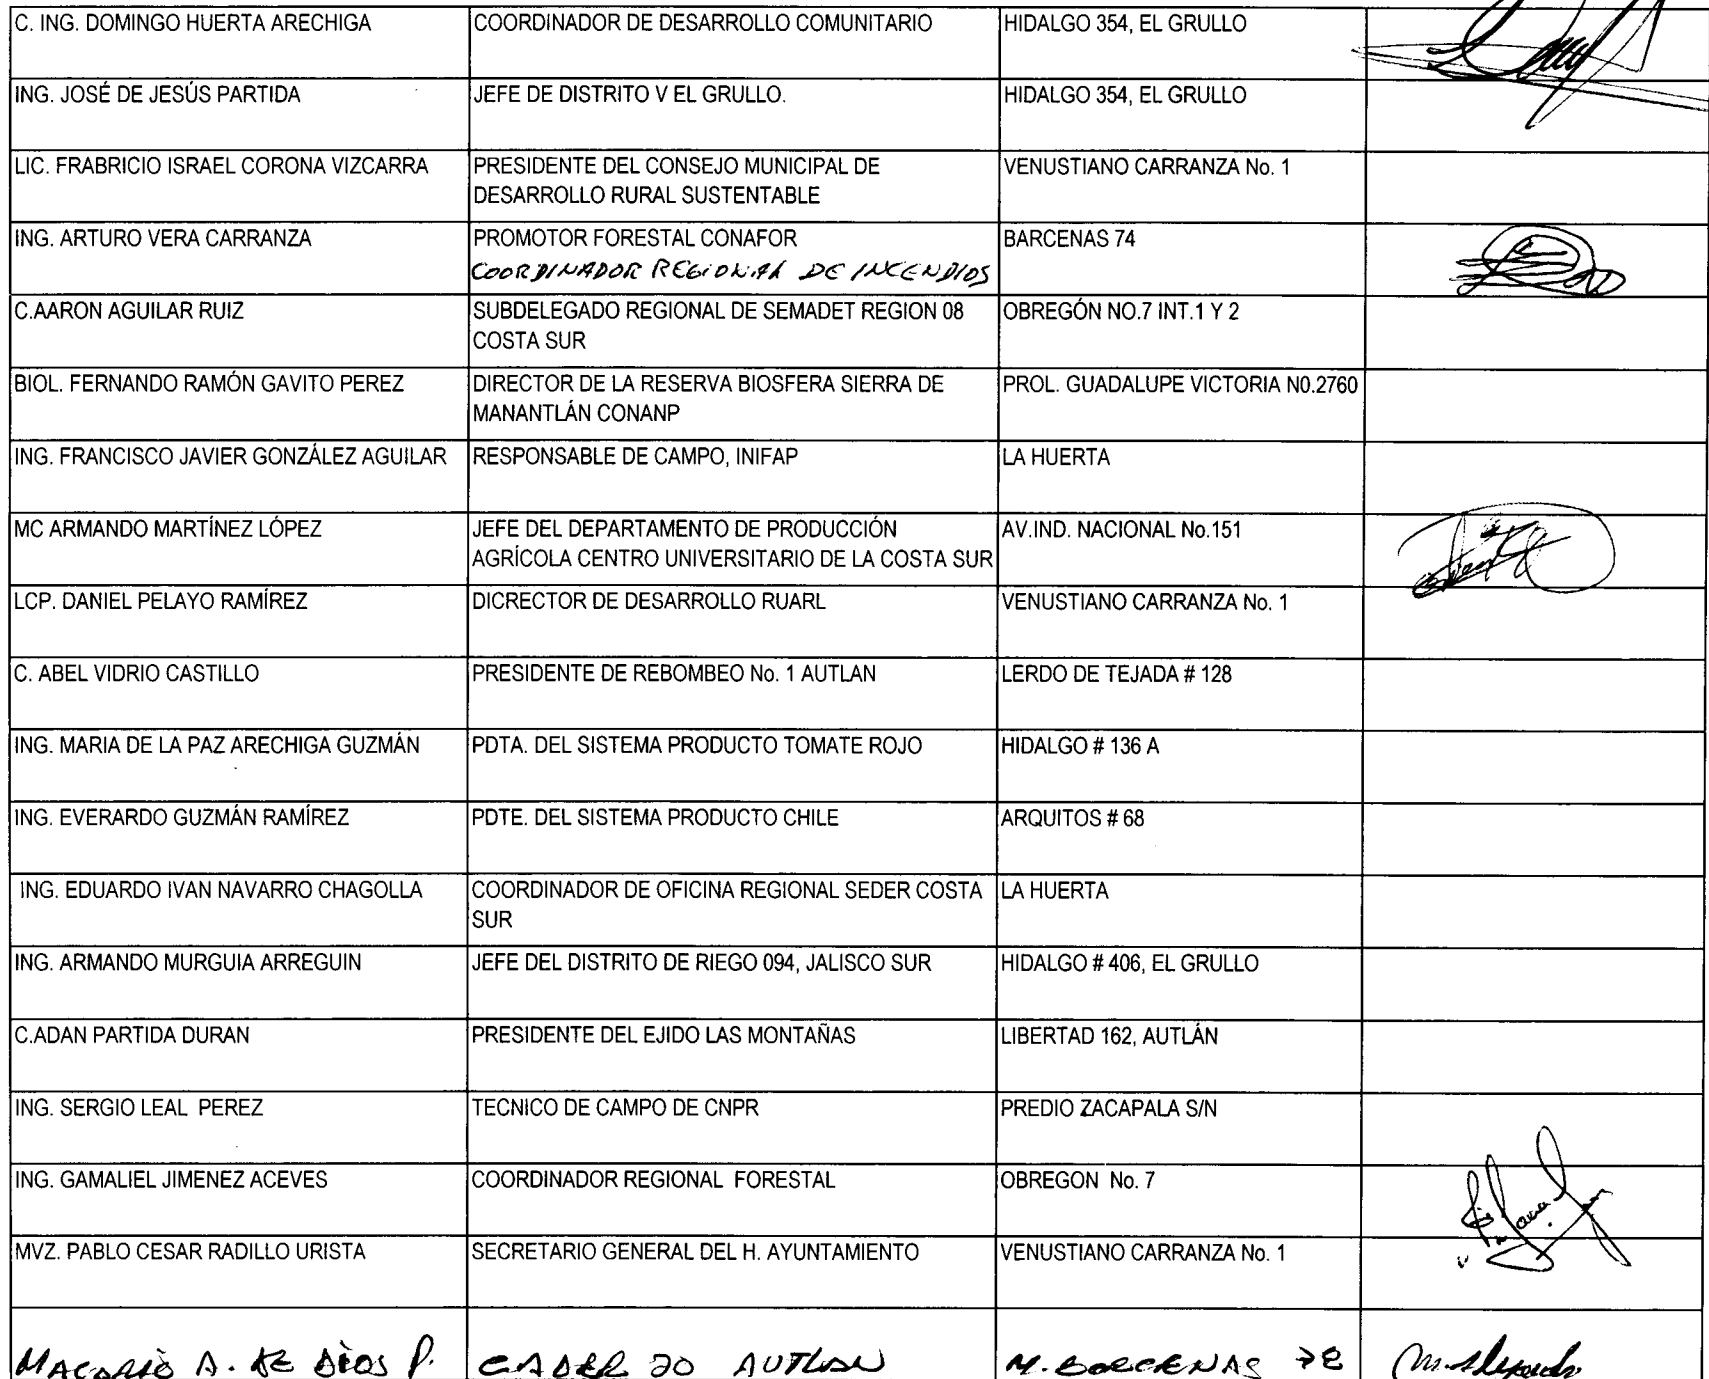 C. ING. DOMINGO HUERTA ARECHIGA COORDINADOR DE DESARROLLO COMUNITARIO HIDALGO 354, EL GRULLO
ING. JOSÉ DE JESÚS PARTIDA JEFE DE DISTRITO V EL GRULLO. HIDALGO 354, EL GRULLO
LIC. FRABRICIO ISRAEL CORONA VIZCARRA PRESIDENTE DEL CONSEJO MUNICIPAL DE VENUSTIANO CARRANZA No. 1
DESARROLLO RURAL SUSTENTABLE
ING. ARTURO VERA CARRANZA PROMOTOR FORESTAL CONAFOR BARCENAS 74
COORDINADOR REGIONAL DE INCENDIOS
C.AARON AGUILAR RUIZ SUBDELEGADO REGIONAL DE SEMADET REGION 08 OBREGÓN NO.7 INT.1 Y 2
COSTA SUR
BIOL. FERNANDO RAMÓN GAVITO PEREZ DIRECTOR DE LA RESERVA BIOSFERA SIERRA DE PROL. GUADALUPE VICTORIA N0.2760
MANANTLÁN CONANP
ING. FRANCISCO JAVIER GONZÁLEZ AGUILAR RESPONSABLE DE CAMPO, INIFAP LA HUERTA
MC ARMANDO MARTÍNEZ LÓPEZ JEFE DEL DEPARTAMENTO DE PRODUCCIÓN AV.IND. NACIONAL No.151
AGRÍCOLA CENTRO UNIVERSITARIO DE LA COSTA SUR
LCP. DANIEL PELAYO RAMÍREZ DICRECTOR DE DESARROLLO RUARL VENUSTIANO CARRANZA No. 1
C. ABEL VIDRIO CASTILLO PRESIDENTE DE REBOMBEO No. 1 AUTLAN LERDO DE TEJADA # 128
ING. MARIA DE LA PAZ ARECHIGA GUZMÁN PDTA. DEL SISTEMA PRODUCTO TOMATE ROJO HIDALGO # 136 A
ING. EVERARDO GUZMÁN RAMÍREZ PDTE. DEL SISTEMA PRODUCTO CHILE ARQUITOS # 68
ING. EDUARDO IVAN NAVARRO CHAGOLLA COORDINADOR DE OFICINA REGIONAL SEDER COSTA LA HUERTA
SUR
ING. ARMANDO MURGUIA ARREGUIN JEFE DEL DISTRITO DE RIEGO 094, JALISCO SUR HIDALGO # 406, EL GRULLO
C.ADAN PARTIDA DURAN PRESIDENTE DEL EJIDO LAS MONTAÑAS LIBERTAD 162, AUTLÁN
ING. SERGIO LEAL PEREZ TECNICO DE CAMPO DE CNPR PREDIO ZACAPALA S/N
ING. GAMALIEL JIMENEZ ACEVES COORDINADOR REGIONAL FORESTAL OBREGON No. 7
MVZ. PABLO CESAR RADILLO URISTA SECRETARIO GENERAL DEL H. AYUNTAMIENTO VENUSTIANO CARRANZA No. 1
MACARIO A. DE DIOS P. CADER AUTLAN M.